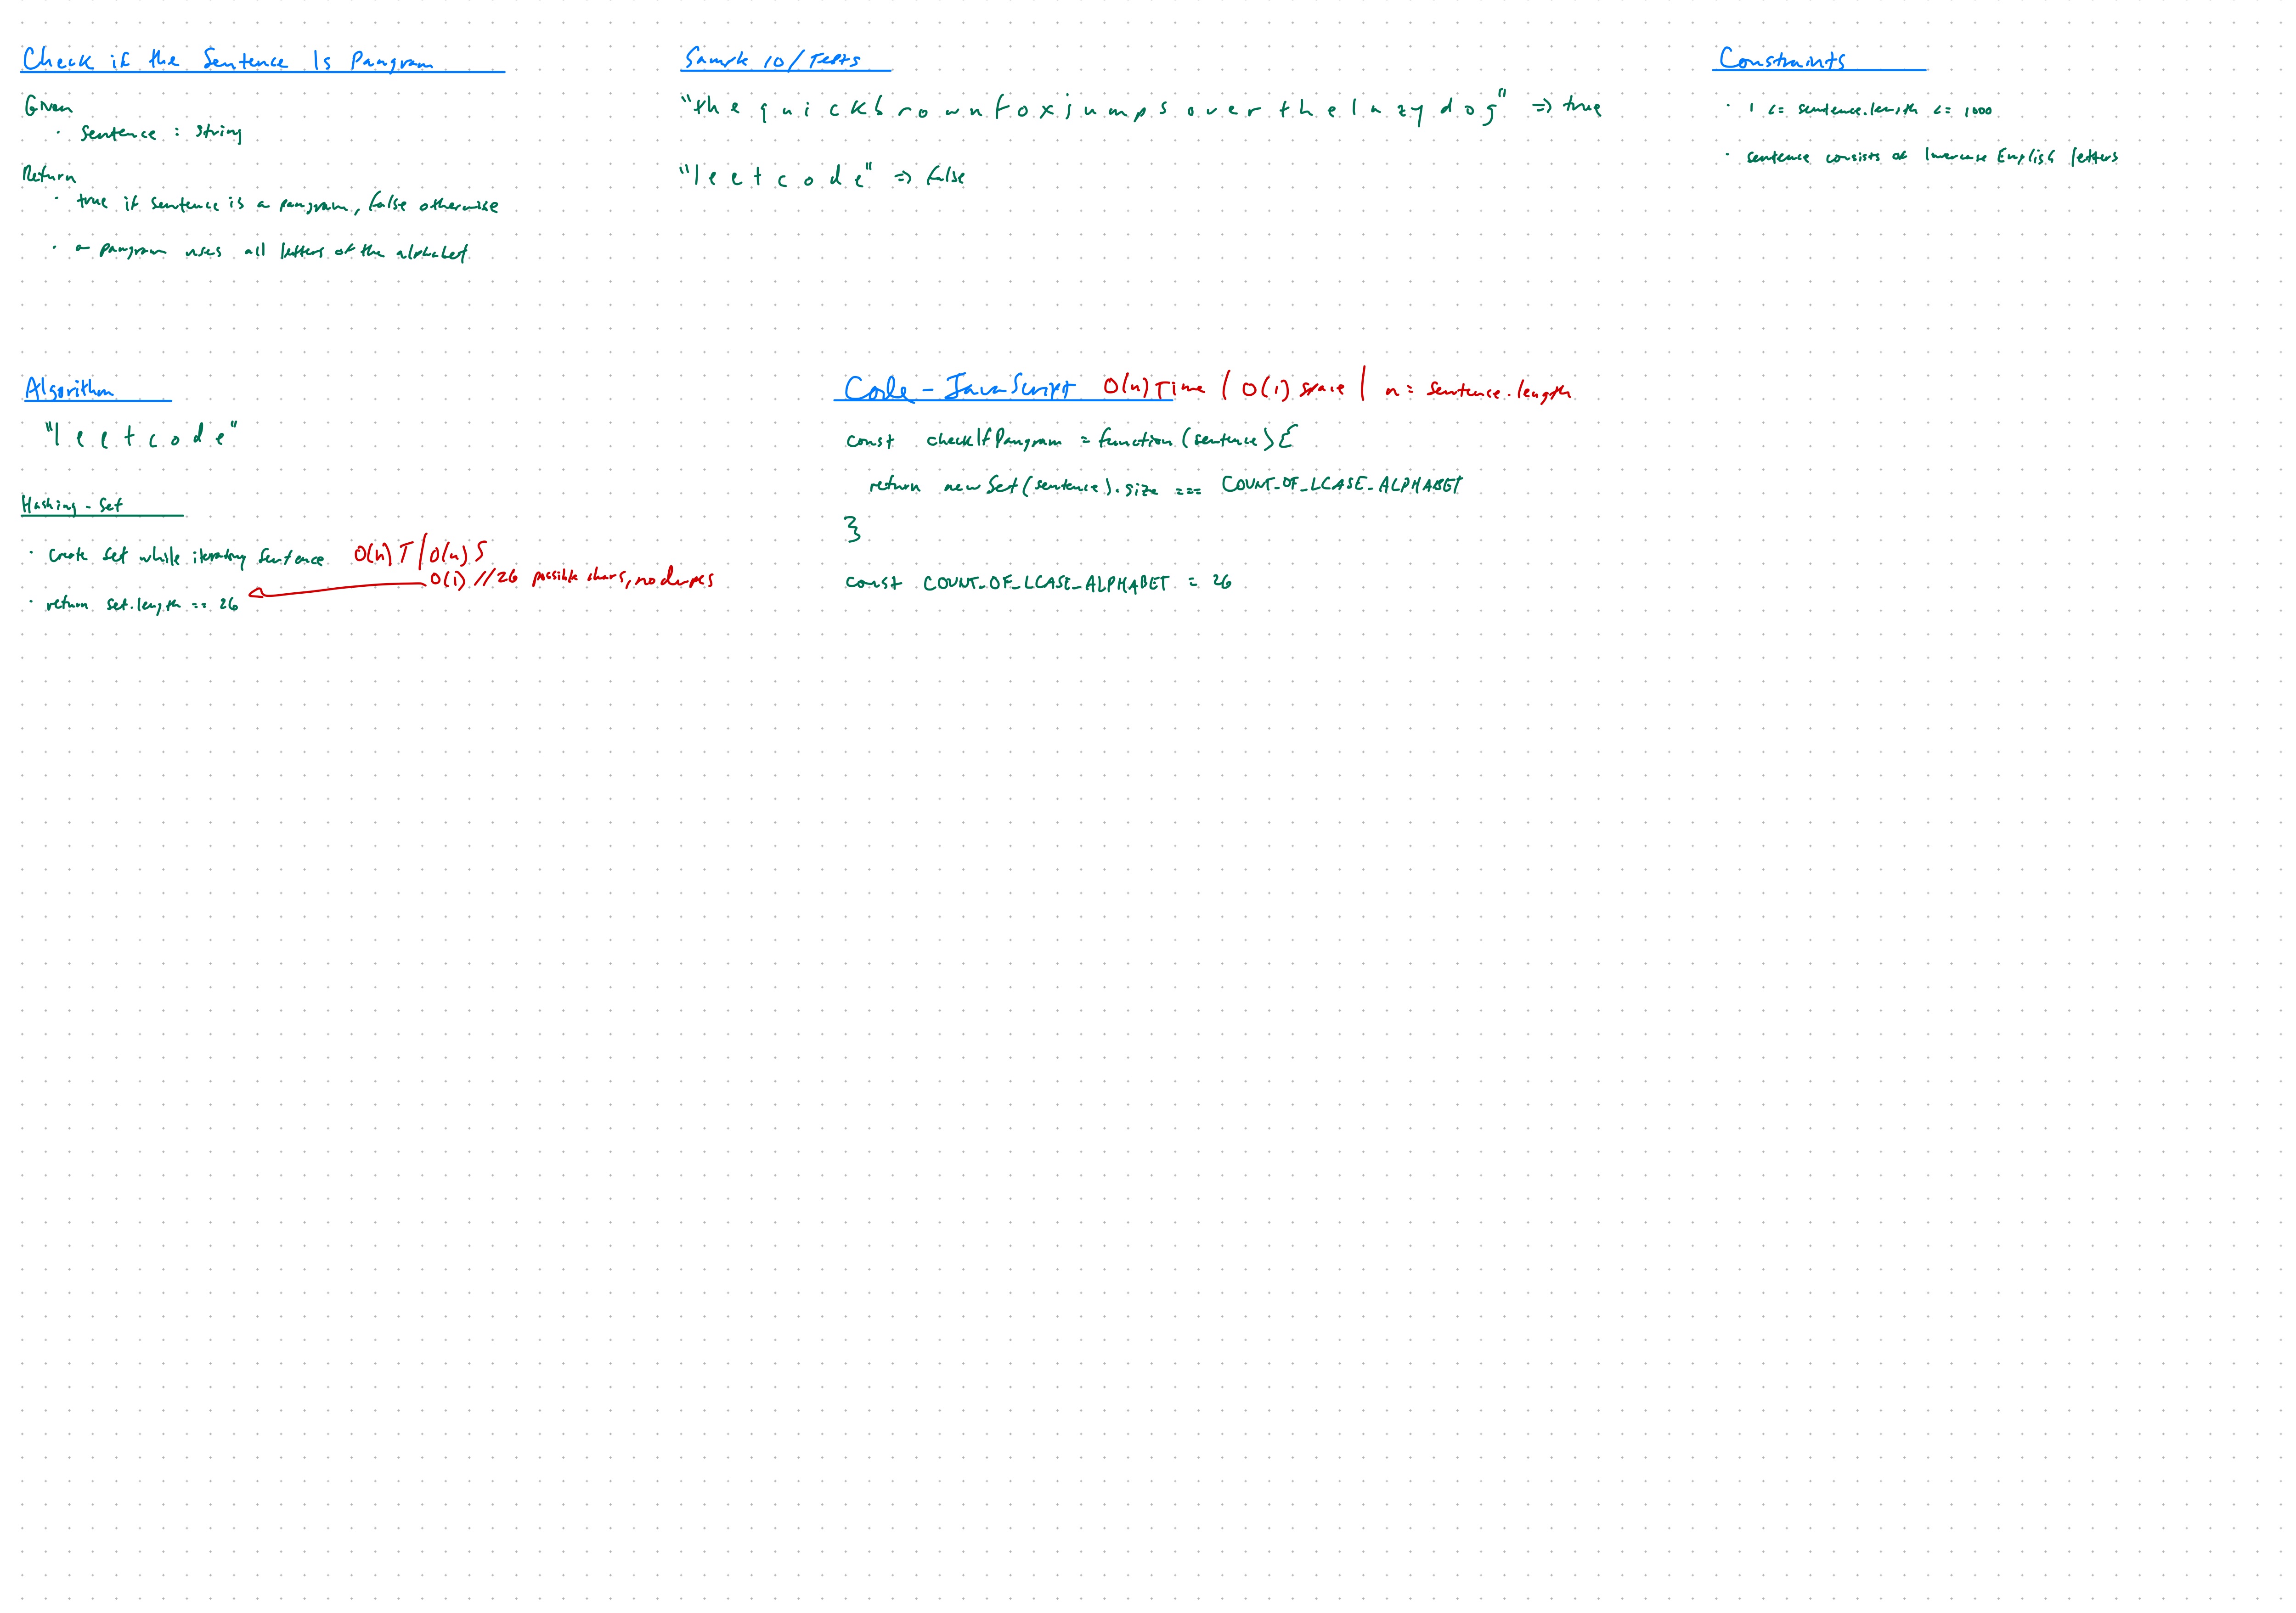 Check if the Sentence Is Pangram
Given
· sentence : string
Return
· true if sentence is a pangram, false otherwise
· a pangram uses all letters of the alphabet
Sample IO/Tests
"thequickbrownfoxjumpsoverthelazydog" => true
"leetcode" => false
Constraints
· 1 <= sentence.length <= 1000
· sentence consists of lowercase English letters
Algorithm
"leetcode"
Hashing - Set
· create set while iterating sentence O(n) T / O(n) S
O(1) // 26 possible chars, no dupes
· return set.length == 26
Code - JavaScript O(n) Time | O(1) space | n = sentence.length
const checkIfPangram = function (sentence) {
return new Set(sentence).size === COUNT_OF_LCASE_ALPHABET
}
const COUNT_OF_LCASE_ALPHABET = 26